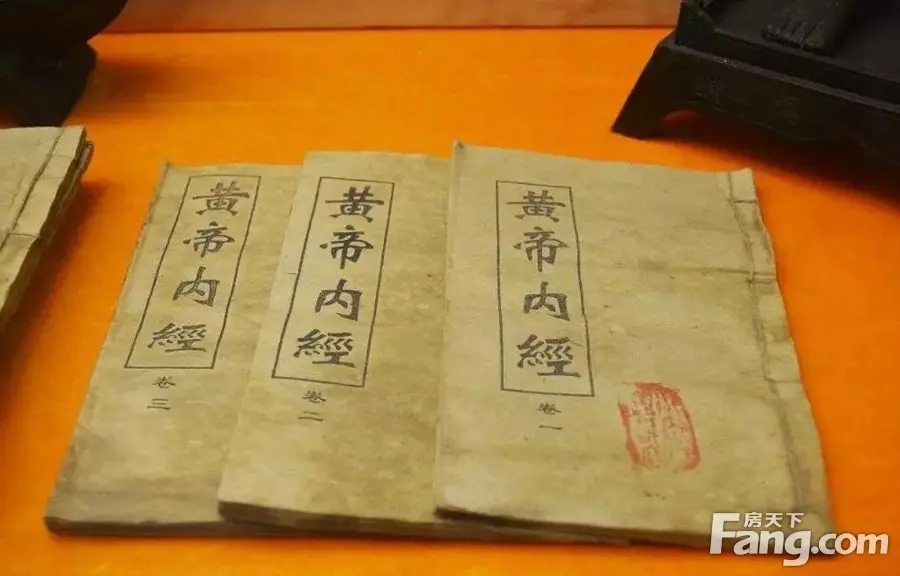 黃帝內經
卷三
黃帝內經
卷二
黃帝內經
卷一
房天下
Fang.com